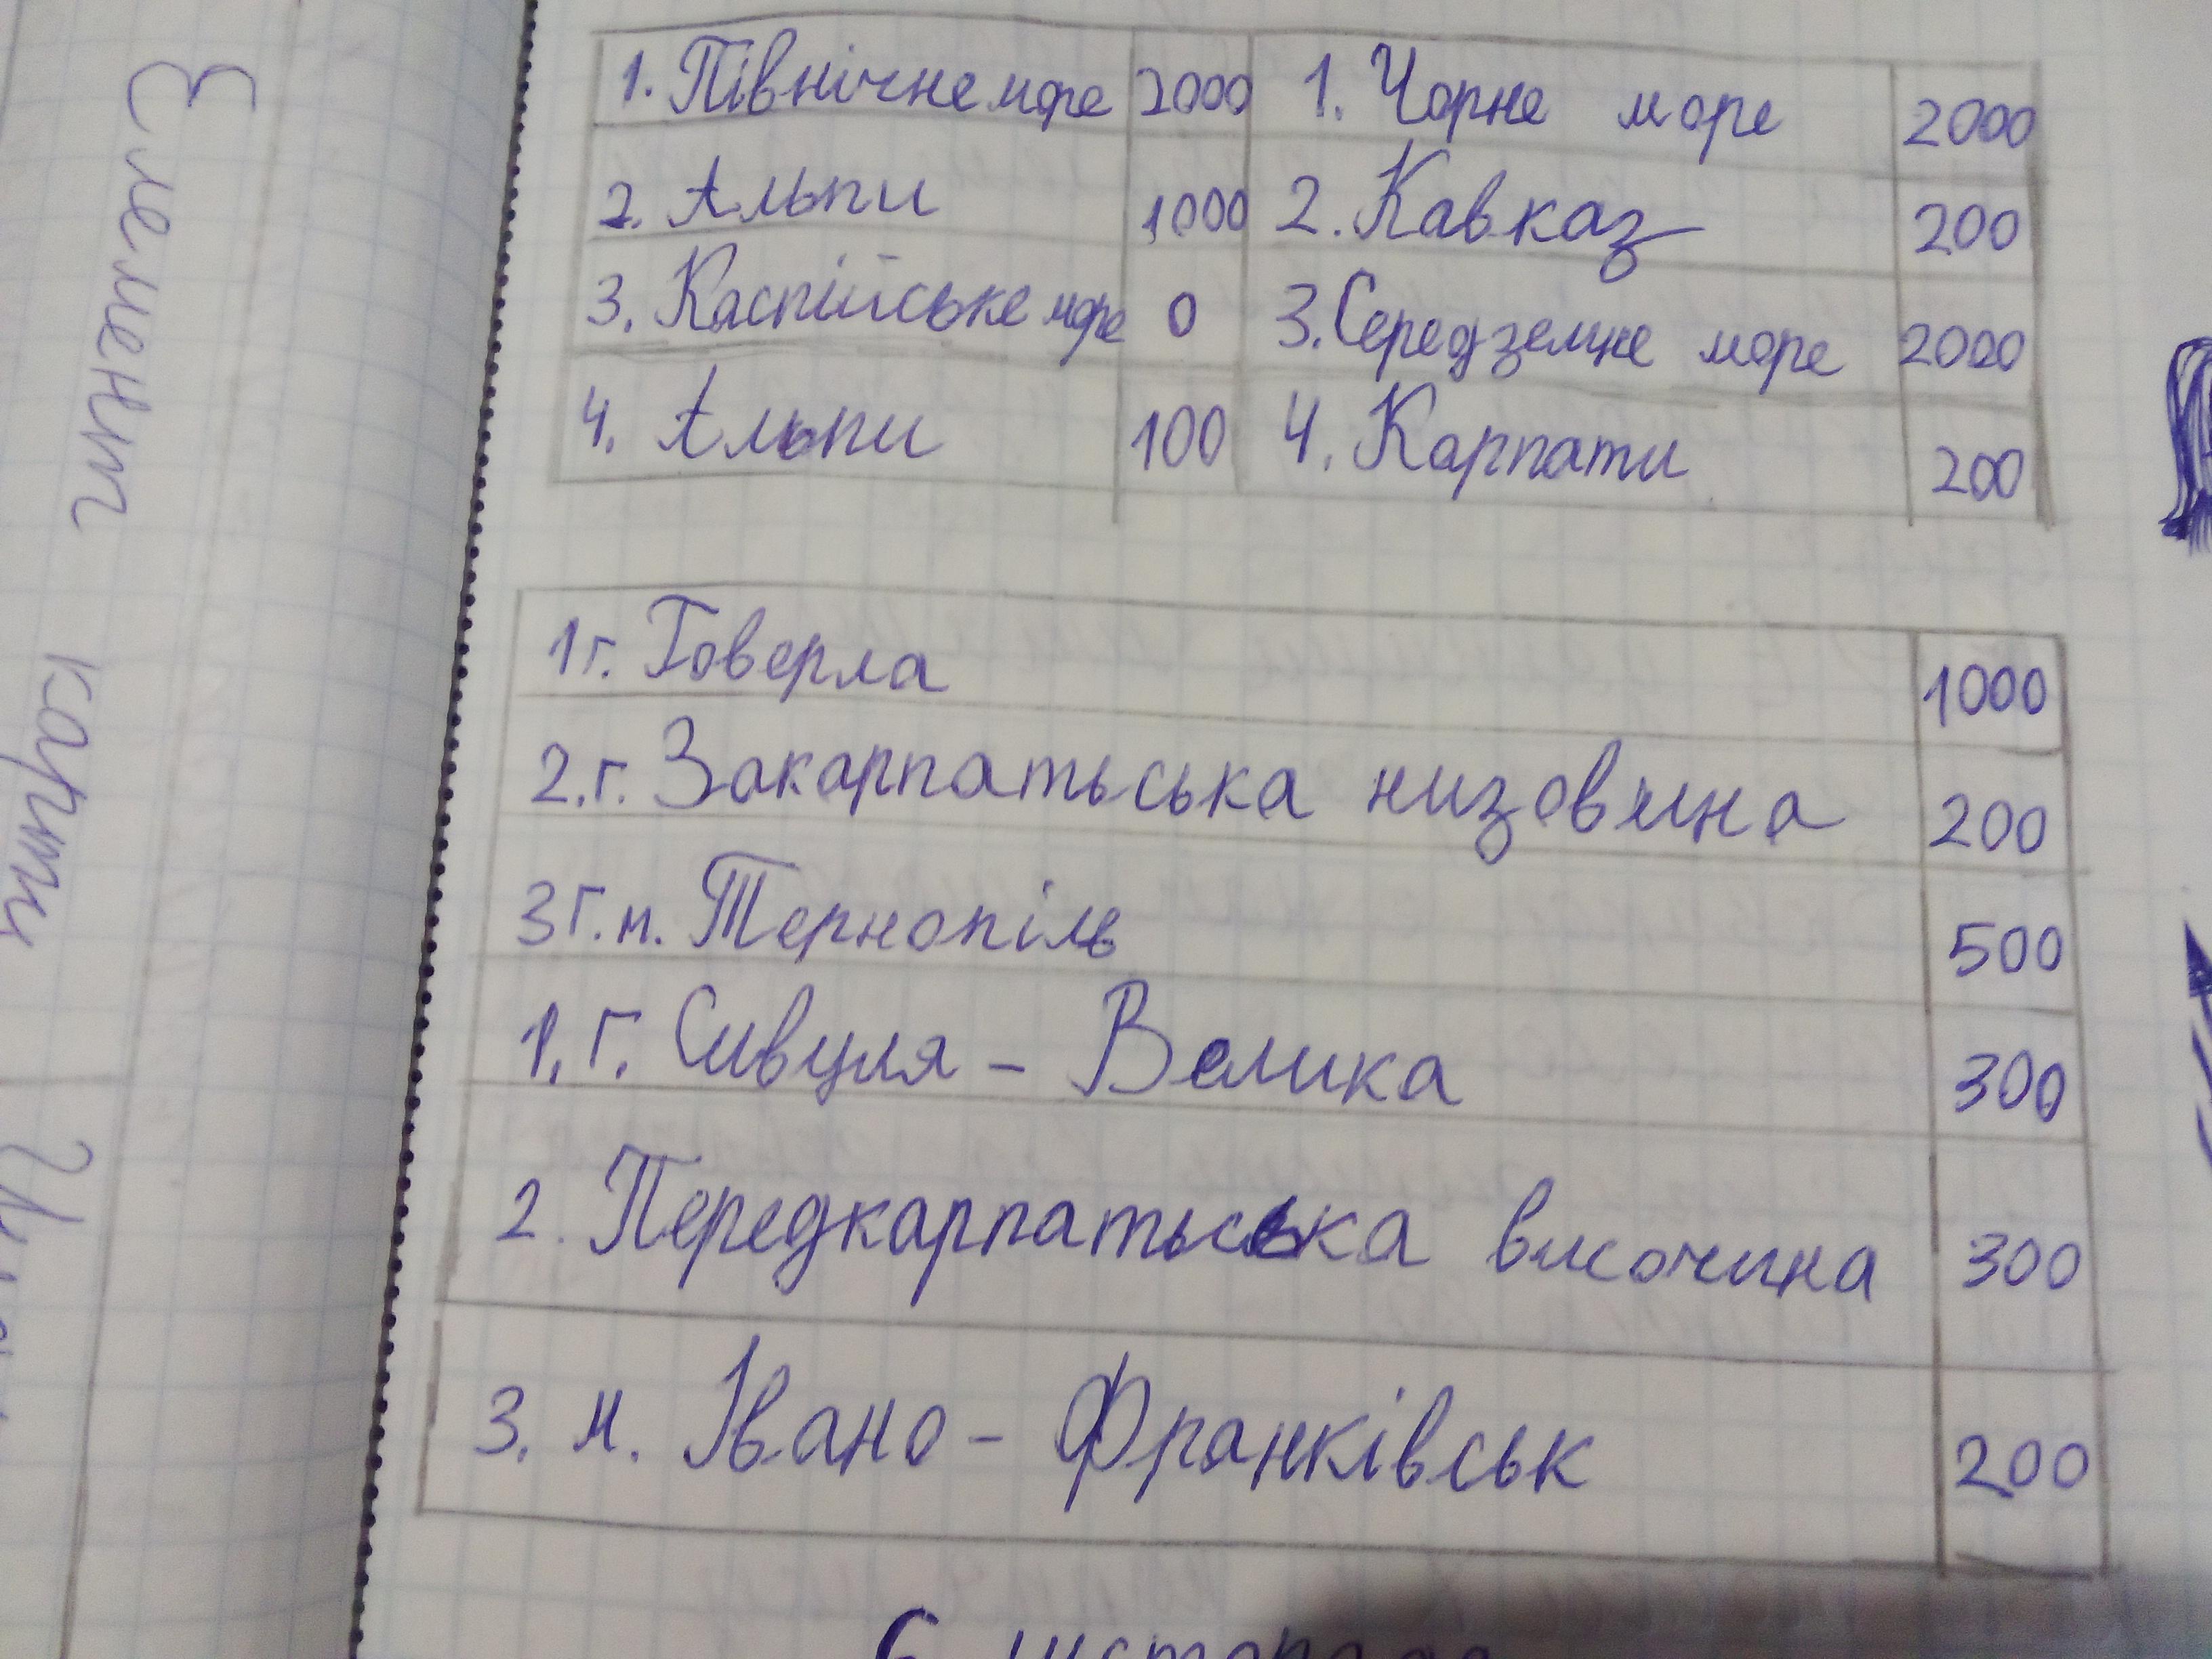 Елемент карти
1. Північне море 2000 1. Чорне море 2000
2. Альпи 1000 2. Кавказ 200
3. Каспійське море 0 3. Середземне море 2000
4. Альпи 100 4. Карпати 200
1г. Говерла 1000
2.г. Закарпатьська низовина 200
3г.м. Тернопіль 500
1.г. Сивуля - Велика 300
2. Передкарпатьська височина 300
3. м. Івано - Франківськ 200
6 листопада